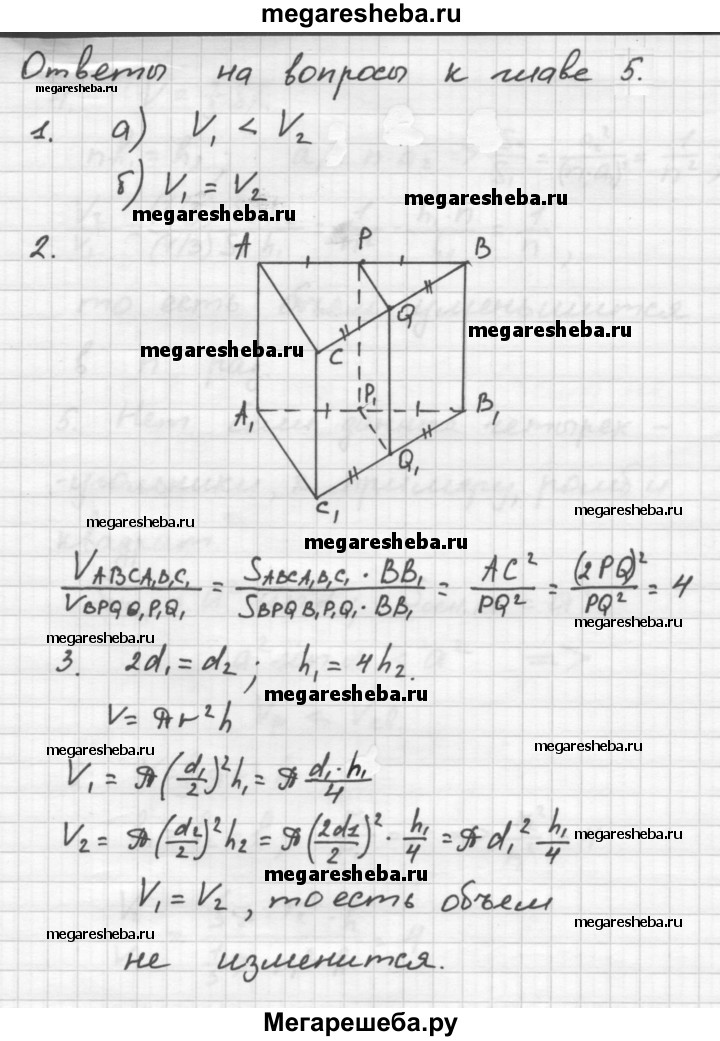 megaresheba.ru
Ответы на вопросы к главе 5.
megaresheba.ru
1. а) V₁ < V₂
б) V₁ = V₂
megaresheba.ru
megaresheba.ru
2.
A P B
Q
C
megaresheba.ru
megaresheba.ru
A₁ P₁ B₁
Q₁
C₁
megaresheba.ru
megaresheba.ru
megaresheba.ru
V_ABCA₁B₁C₁ / V_BPQB₁P₁Q₁ = S_ABCA₁B₁C₁ · BB₁ / S_BPQB₁P₁Q₁ · BB₁ = AC² / PQ² = (2PQ)² / PQ² = 4
megaresheba.ru
megaresheba.ru
3. 2d₁ = d₂ ; h₁ = 4h₂.
megaresheba.ru
V = πr²h
megaresheba.ru
megaresheba.ru
V₁ = π(d₁/2)²h₁ = π d₁·h₁/4
V₂ = π(d₂/2)²h₂ = π(2d1/2)² · h₁/4 = πd₁² h₁/4
megaresheba.ru
megaresheba.ru
V₁ = V₂, то есть объем
megaresheba.ru
megaresheba.ru
не изменится.
Мегарешеба.ру